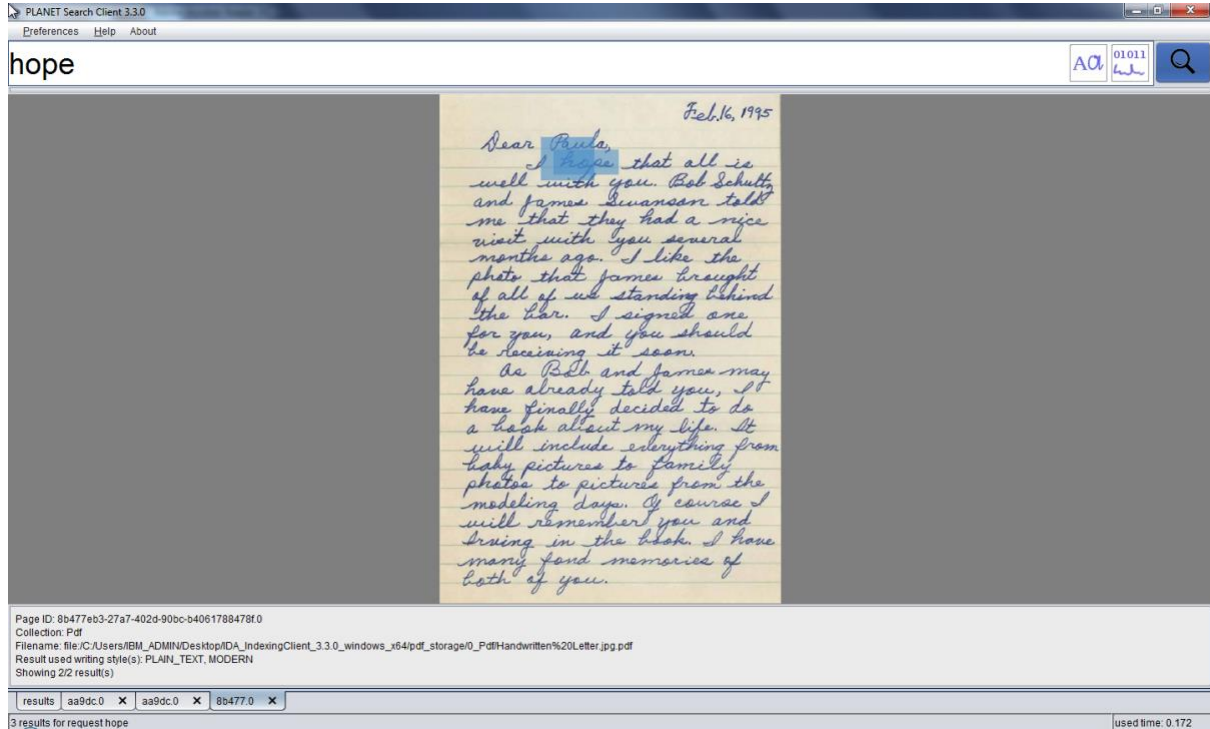 PLANET Search Client 3.3.0
Preferences Help About
hope
Aa 01011
Feb. 16, 1995
Dear Paula,
I hope that all is
well with you. Bob Schultz
and James Swanson told
me that they had a nice
visit with you several
months ago. I like the
photo that James brought
of all of us standing behind
the bar. I signed one
for you, and you should
be receiving it soon.
As Bob and James may
have already told you, I
have finally decided to do
a book about my life. It
will include everything from
baby pictures to family
photos to pictures from the
modeling days. Of course I
will remember you and
Irving in the book. I have
many fond memories of
both of you.
Page ID: 8b477eb3-27a7-402d-90bc-b4061788478f.0
Collection: Pdf
Filename: file:/C:/Users/IBM_ADMIN/Desktop/IDA_IndexingClient_3.3.0_windows_x64/pdf_storage/0_Pdf/Handwritten%20Letter.jpg.pdf
Result used writing style(s): PLAIN_TEXT, MODERN
Showing 2/2 result(s)
results aa9dc.0 X aa9dc.0 X 8b477.0 X
3 results for request hope used time: 0.172